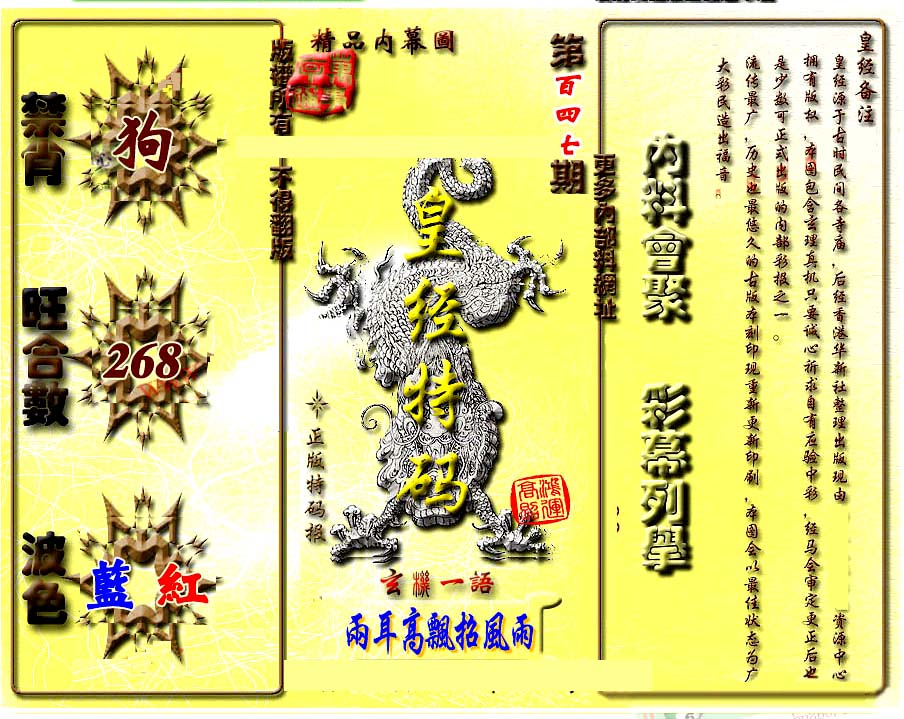 皇经备注
皇经源于古时民间各寺庙，后经香港华新社整理出版现由 资源中心
拥有版权，本图包含玄理真机只要诚心祈求自有应验中彩，经马会审定更正后也
是少数可正式出版的内部彩报之一。
流传最广，历史也最悠久的古版本刻印现重新更新印刷，本图会以最佳状态为广
大彩民造出福音
内料會聚
彩幕列舉
更多內部料網址
第百四七期
精品内幕圖
皇经特码
正版特码报
鴻運
高照
玄機一語
兩耳高飄招風雨
版權所有
不得翻版
禁肖
狗
旺合數
268
波色
藍 紅